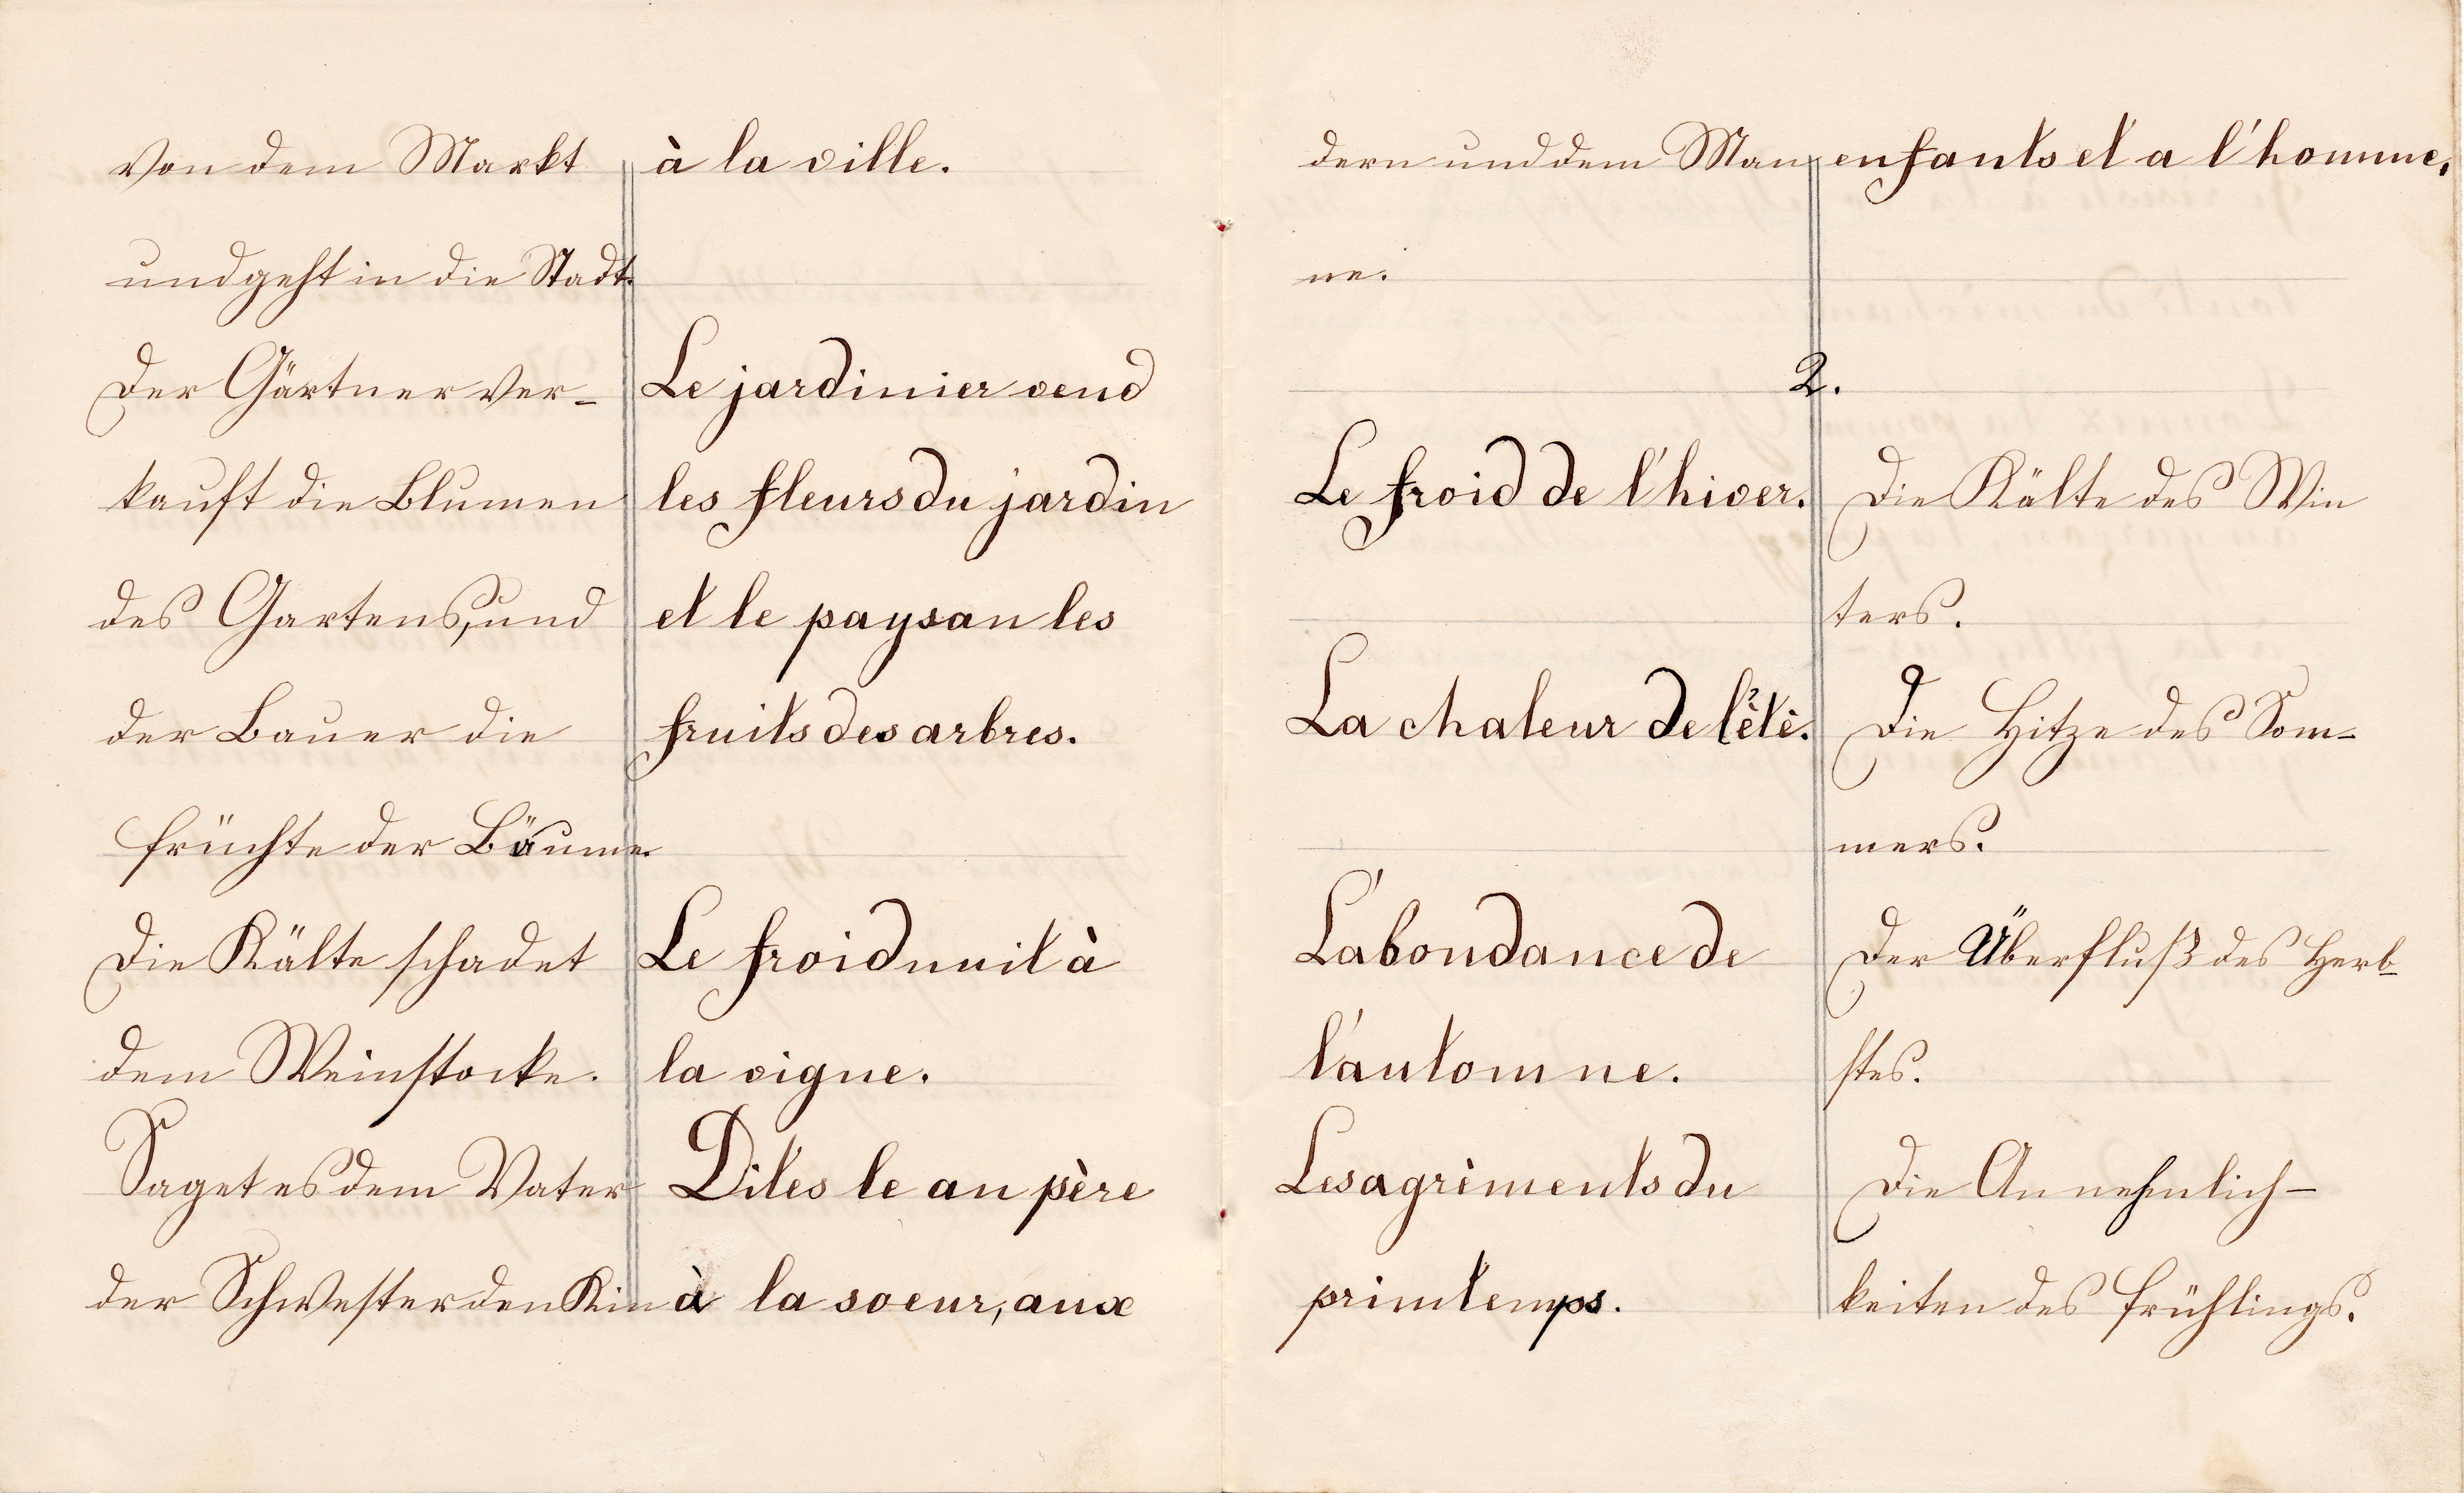 von dem Markt
und geht in die Stadt.
Der Gärtner ver-
kauft die Blumen
des Gartens, und
der Bauer die
Früchte der Bäume.
Die Kälte schadet
dem Weinstocke.
Saget es dem Vater
der Schwester den Kin
à la ville.
Le jardinier vend
les fleurs du jardin
et le paysan les
fruits des arbres.
Le froid nuit à
la vigne.
Dites le au père
à la soeur, aux
dern und dem Man
ne.
enfants et a l'homme.
2.
Le froid de l'hiver.
La chaleur de l'ètè.
L'abondance de
l'automne.
Les agrèments du
printemps.
Die Kälte des Win
ters.
Die Hitze des Som-
mers.
Der Überfluß des Herb-
stes.
Die Annehmlich-
keiten des Frühlings.